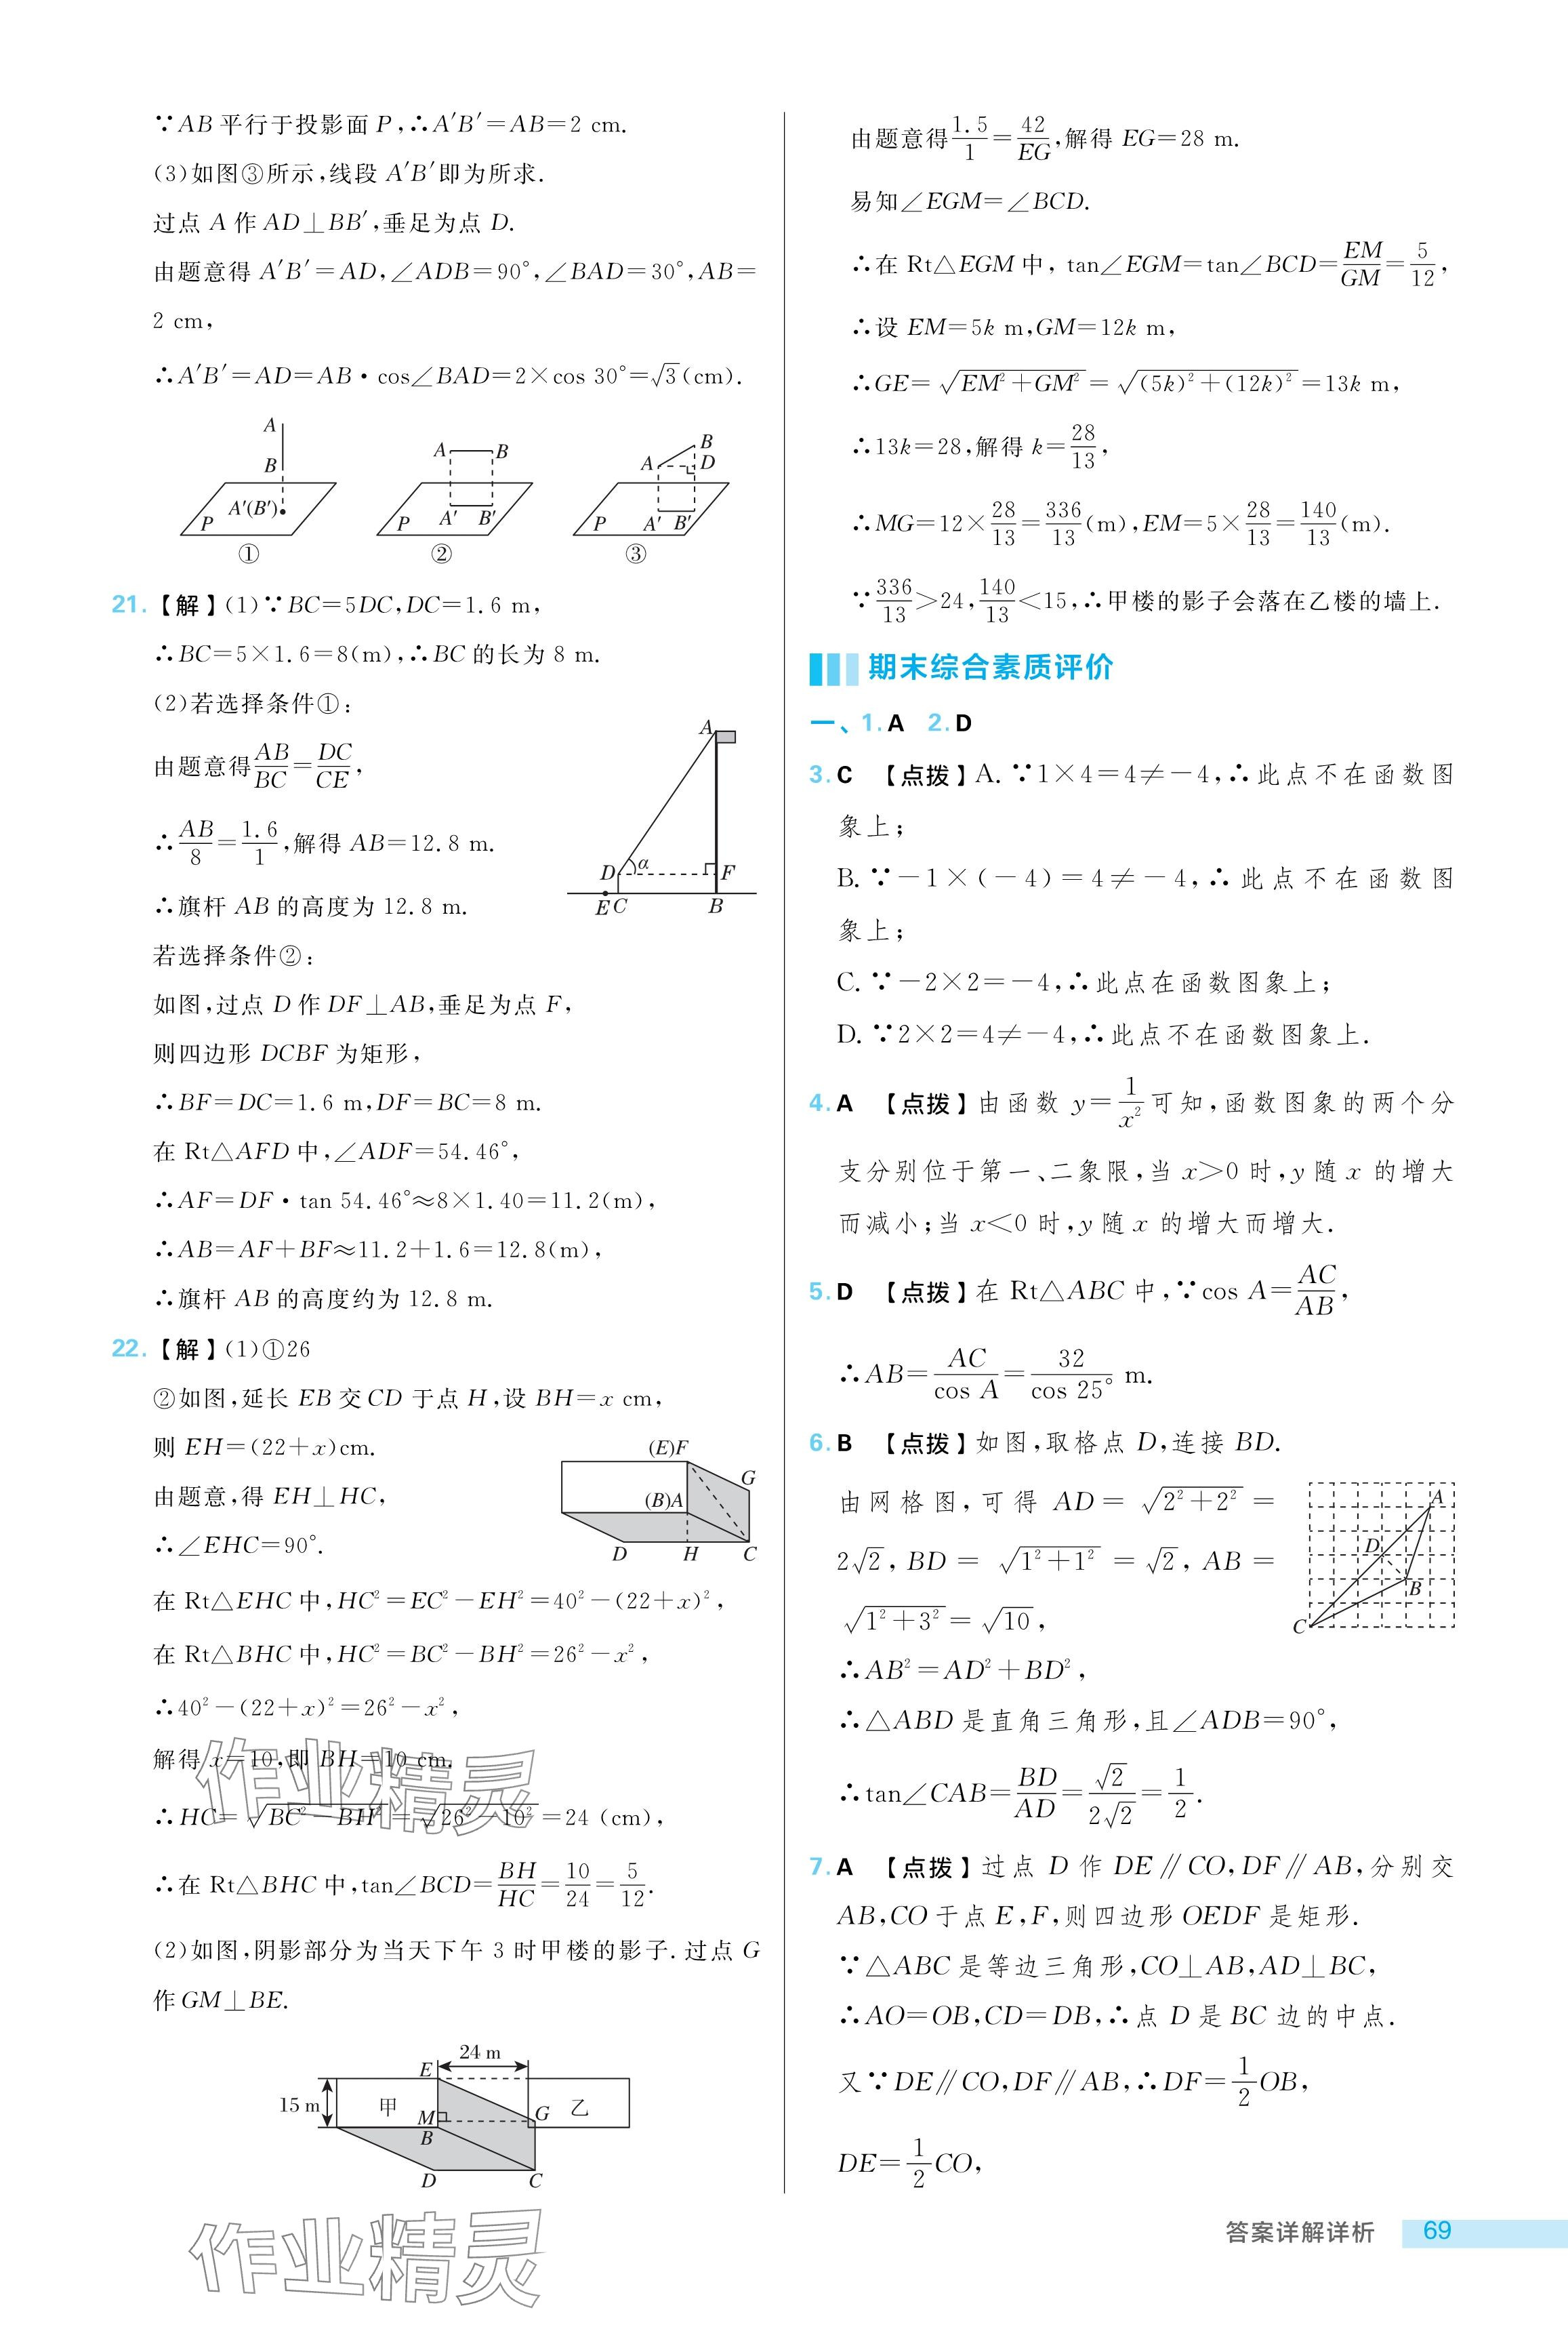 ∵AB平行于投影面P,∴A′B′=AB=2 cm.
(3)如图③所示,线段A′B′即为所求.
过点A作AD⊥BB′,垂足为点D.
由题意得A′B′=AD,∠ADB=90°,∠BAD=30°,AB=
2 cm,
∴A′B′=AD=AB·cos∠BAD=2×cos 30°=√3(cm).
A B A′(B′) P ①
A B A′ B′ P ②
A B D A′ B′ P ③
21.【解】(1)∵BC=5DC,DC=1.6 m,
∴BC=5×1.6=8(m),∴BC的长为8 m.
(2)若选择条件①:
由题意得AB/BC=DC/CE,
∴AB/8=1.6/1,解得AB=12.8 m.
∴旗杆AB的高度为12.8 m.
A D α F E C B
若选择条件②:
如图,过点D作DF⊥AB,垂足为点F,
则四边形DCBF为矩形,
∴BF=DC=1.6 m,DF=BC=8 m.
在Rt△AFD中,∠ADF=54.46°,
∴AF=DF·tan 54.46°≈8×1.40=11.2(m),
∴AB=AF+BF≈11.2+1.6=12.8(m),
∴旗杆AB的高度约为12.8 m.
22.【解】(1)①26
②如图,延长EB交CD于点H,设BH=x cm,
则EH=(22+x)cm.
由题意,得EH⊥HC,
∴∠EHC=90°.
(E)F G (B)A D H C
在Rt△EHC中,HC²=EC²-EH²=40²-(22+x)²,
在Rt△BHC中,HC²=BC²-BH²=26²-x²,
∴40²-(22+x)²=26²-x²,
解得x=10,即BH=10 cm.
∴HC=√(BC²-BH²)=√(26²-10²)=24 (cm),
∴在Rt△BHC中,tan∠BCD=BH/HC=10/24=5/12.
(2)如图,阴影部分为当天下午3时甲楼的影子.过点G
作GM⊥BE.
24 m
E
15 m 甲 M G 乙
B
D C
作业精灵
作业精灵
由题意得1.5/1=42/EG,解得EG=28 m.
易知∠EGM=∠BCD.
∴在Rt△EGM中,tan∠EGM=tan∠BCD=EM/GM=5/12,
∴设EM=5k m,GM=12k m,
∴GE=√(EM²+GM²)=√((5k)²+(12k)²)=13k m,
∴13k=28,解得k=28/13,
∴MG=12×28/13=336/13(m),EM=5×28/13=140/13(m).
∵336/13>24,140/13<15,∴甲楼的影子会落在乙楼的墙上.
期末综合素质评价
一、1.A 2.D
3.C 【点拨】A.∵1×4=4≠-4,∴此点不在函数图
象上;
B.∵-1×(-4)=4≠-4,∴此点不在函数图
象上;
C.∵-2×2=-4,∴此点在函数图象上;
D.∵2×2=4≠-4,∴此点不在函数图象上.
4.A 【点拨】由函数y=1/x²可知,函数图象的两个分
支分别位于第一、二象限,当x>0时,y随x的增大
而减小;当x<0时,y随x的增大而增大.
5.D 【点拨】在Rt△ABC中,∵cos A=AC/AB,
∴AB=AC/cos A=32/cos 25° m.
6.B 【点拨】如图,取格点D,连接BD.
由网格图,可得AD=√(2²+2²)=
2√2,BD=√(1²+1²)=√2,AB=
√(1²+3²)=√10,
A D B C
∴AB²=AD²+BD²,
∴△ABD是直角三角形,且∠ADB=90°,
∴tan∠CAB=BD/AD=√2/2√2=1/2.
7.A 【点拨】过点D作DE∥CO,DF∥AB,分别交
AB,CO于点E,F,则四边形OEDF是矩形.
∵△ABC是等边三角形,CO⊥AB,AD⊥BC,
∴AO=OB,CD=DB,∴点D是BC边的中点.
又∵DE∥CO,DF∥AB,∴DF=1/2OB,
DE=1/2CO,
答案详解详析 69